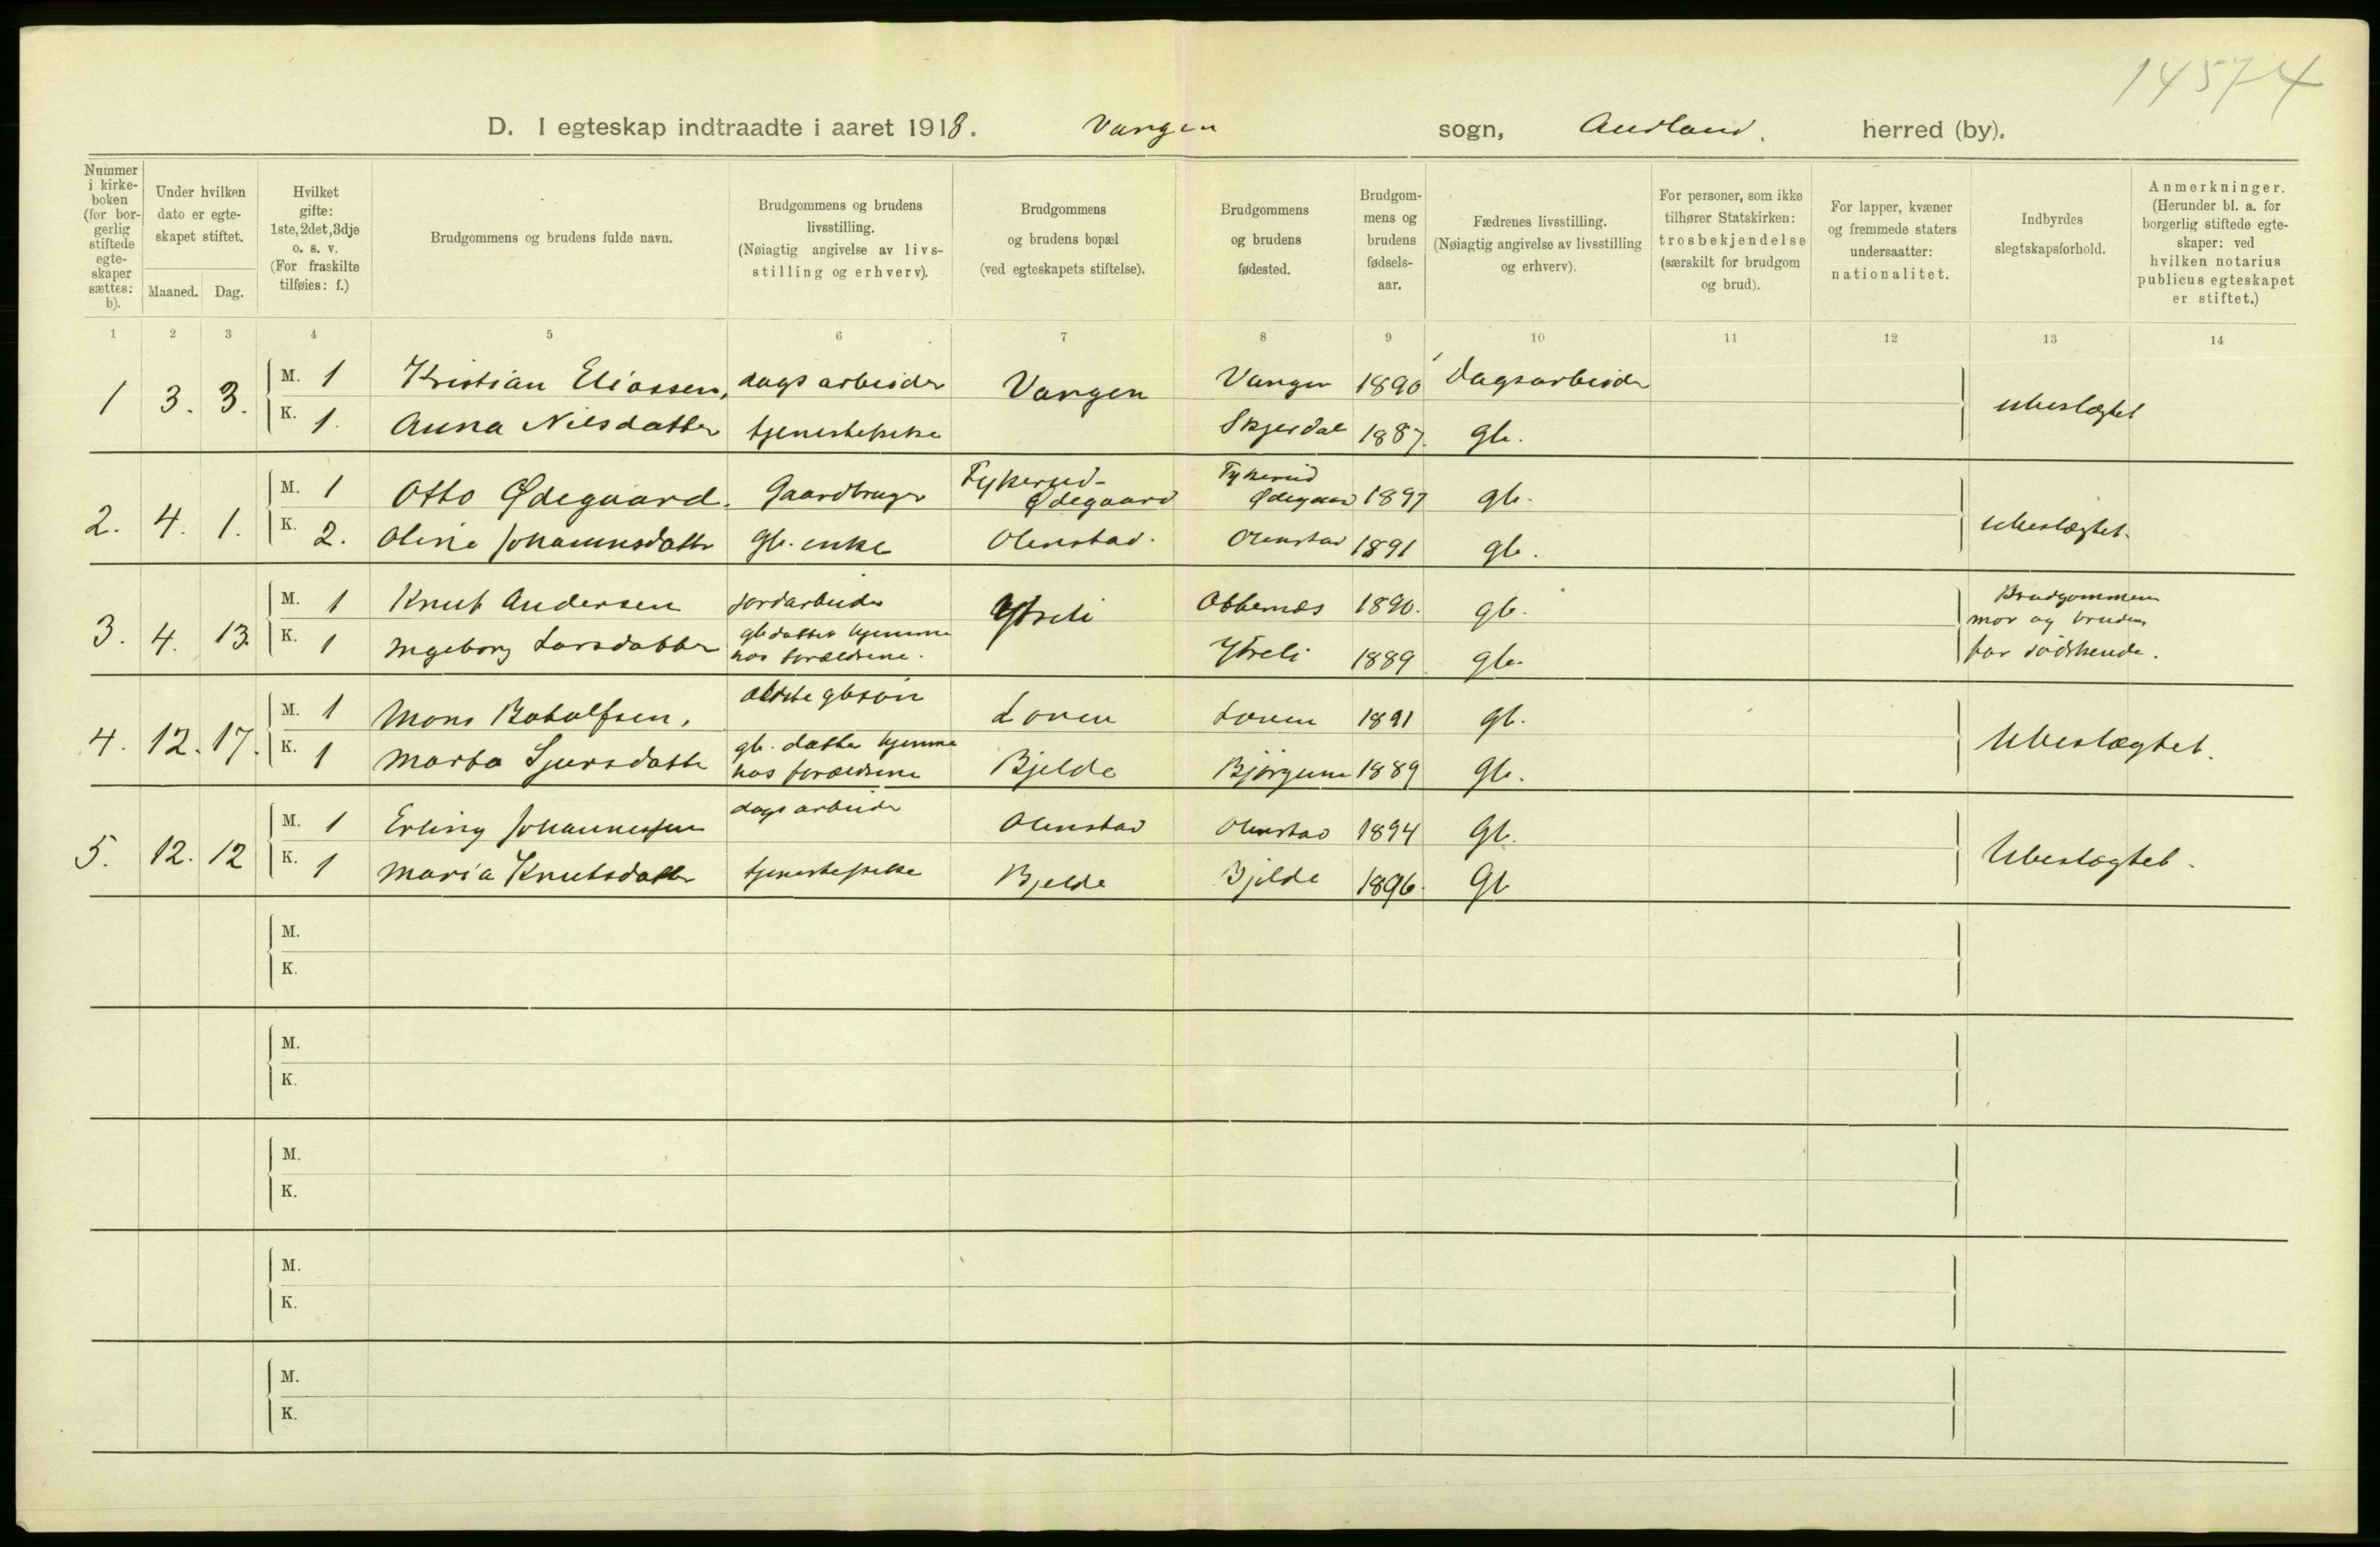 14574
D. I egteskap indtraadte i aaret 1918. Vangen sogn, Aurland. herred (by).
Nummer i kirke-boken (for bor-gerlig stiftede egte-skaper sættes: b).
Under hvilken dato er egte-skapet stiftet.
Maaned. Dag.
Hvilket gifte: 1ste, 2det, 3dje o. s. v. (For fraskilte tilføies: f.)
Brudgommens og brudens fulde navn.
Brudgommens og brudens livsstilling. (Nøiagtig angivelse av livs-stilling og erhverv).
Brudgommens og brudens bopæl (ved egteskapets stiftelse).
Brudgommens og brudens fødested.
Brudgom-mens og brudens fødsels-aar.
Fædrenes livsstilling. (Nøiagtig angivelse av livsstilling og erhverv).
For personer, som ikke tilhører Statskirken: trosbekjendelse (særskilt for brudgom og brud).
For lapper, kvæner og fremmede staters undersaatter: nationalitet.
Indbyrdes slegtskapsforhold.
Anmerkninger. (Herunder bl. a. for borgerlig stiftede egte-skaper: ved hvilken notarius publicus egteskapet er stiftet.)
1 2 3 4 5 6 7 8 9 10 11 12 13 14
1 3. 3. M. 1 Kristian Eliassen, dagsarbeider Vangen Vangen 1890 Dagsarbeider ubeslægtet
K. 1. Anna Nilsdatter tjenestepike Skjerdal 1887. gb.
2. 4. 1. M. 1 Otto Ødegaard. Gaardbruger Fykerud-Ødegaard Fykerud Ødegaard 1897 gb. ubeslægtet.
K. 2. Oline Johannesdatter gb. enke Olenstad. Olenstad 1891 gb.
3. 4. 13. M. 1 Knut Andersen jordarbeider Ytreli Otternes 1890. gb. Brudgommens
mor og brudens
far sødskende.
K. 1 Ingeborg Larsdatter gb datter hjemme
hos forældrene. Ytreli 1889 gb.
4. 12. 17. M. 1 Mons Botolfsen, ældste gbsøn Loven Loven 1891 gb. Ubeslægtet.
K. 1 Marta Sjursdatter gb. datter hjemme
hos forældrene Bjelde Bjørgum 1889 gb.
5. 12. 12 M. 1 Erling Johannessen dagsarbeider Olenstad Olenstad 1894 Gb. Ubeslægtet.
K. 1 Maria Knutsdatter tjenestepike Bjelde Bjelde 1896. Gb
M.
K.
M.
K.
M.
K.
M.
K.
M.
K.